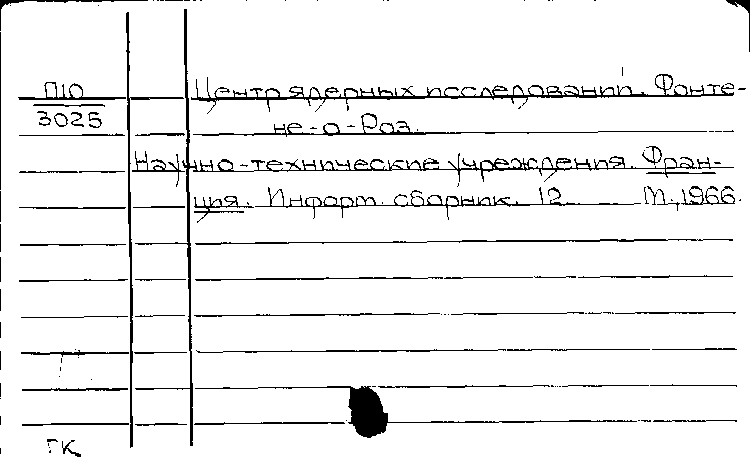 П10
3025
Центр ядерных исследований. Фонте-
не-о-Роз.
Научно-технические учреждения. Фран-
ция. Информ. сборник. 12 М., 1966.
ГК